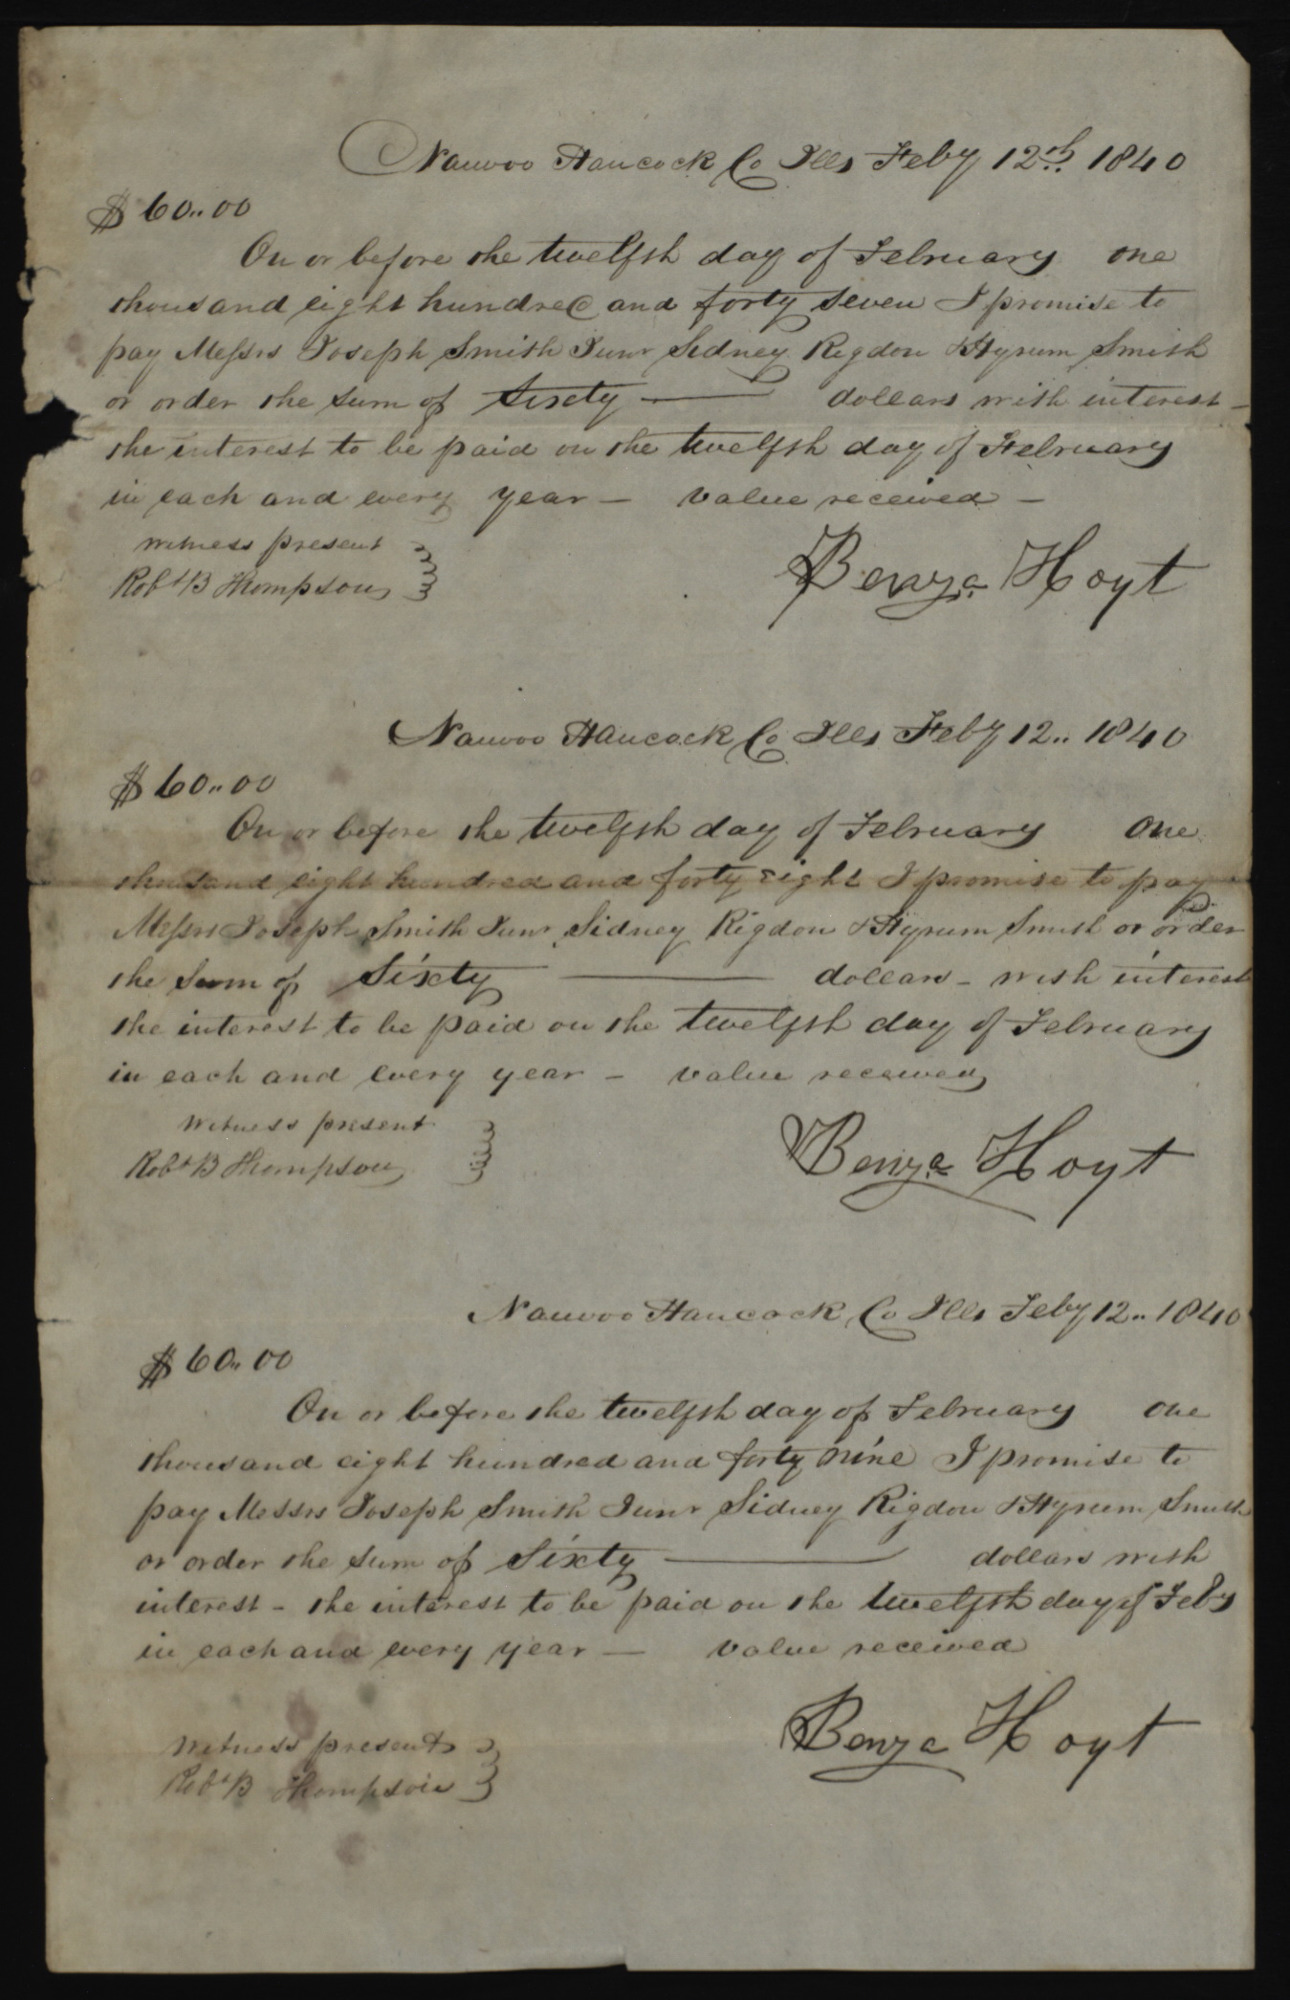 Nauvoo Hancock Co Ills Feby 12th 1840
$60.. 00
On or before the twelfth day of February one
thousand eight hundred and forty seven I promise to
pay Messrs Joseph Smith Junr Sidney Rigdon & Hyrum Smith
or order the sum of Sixty — dollars with interest –
the interest to be paid on the twelfth day of February
in each and every year – value received –
Witness present
Robt B Thompson
Benja Hoyt
Nauvoo Hancock Co Ills Feby 12.. 1840
$60.. 00
On or before the twelfth day of February one
thousand eight hundred and forty eight I promise to pay
Messrs Joseph Smith Junr Sidney Rigdon & Hyrum Smith or order
the sum of Sixty — dollars – with interest
the interest to be paid on the twelfth day of February
in each and every year – value received
Witness present
Robt B Thompson
Benja Hoyt
Nauvoo Hancock Co Ills Feby 12.. 1840
$60.. 00
On or before the twelfth day of February one
thousand eight hundred and forty nine I promise to
pay Messrs Joseph Smith Junr Sidney Rigdon & Hyrum Smith
or order the sum of Sixty — dollars with
interest – the interest to be paid on the twelfth day of Feby
in each and every year — value received
Witness present
Robt B Thompson
Benja Hoyt